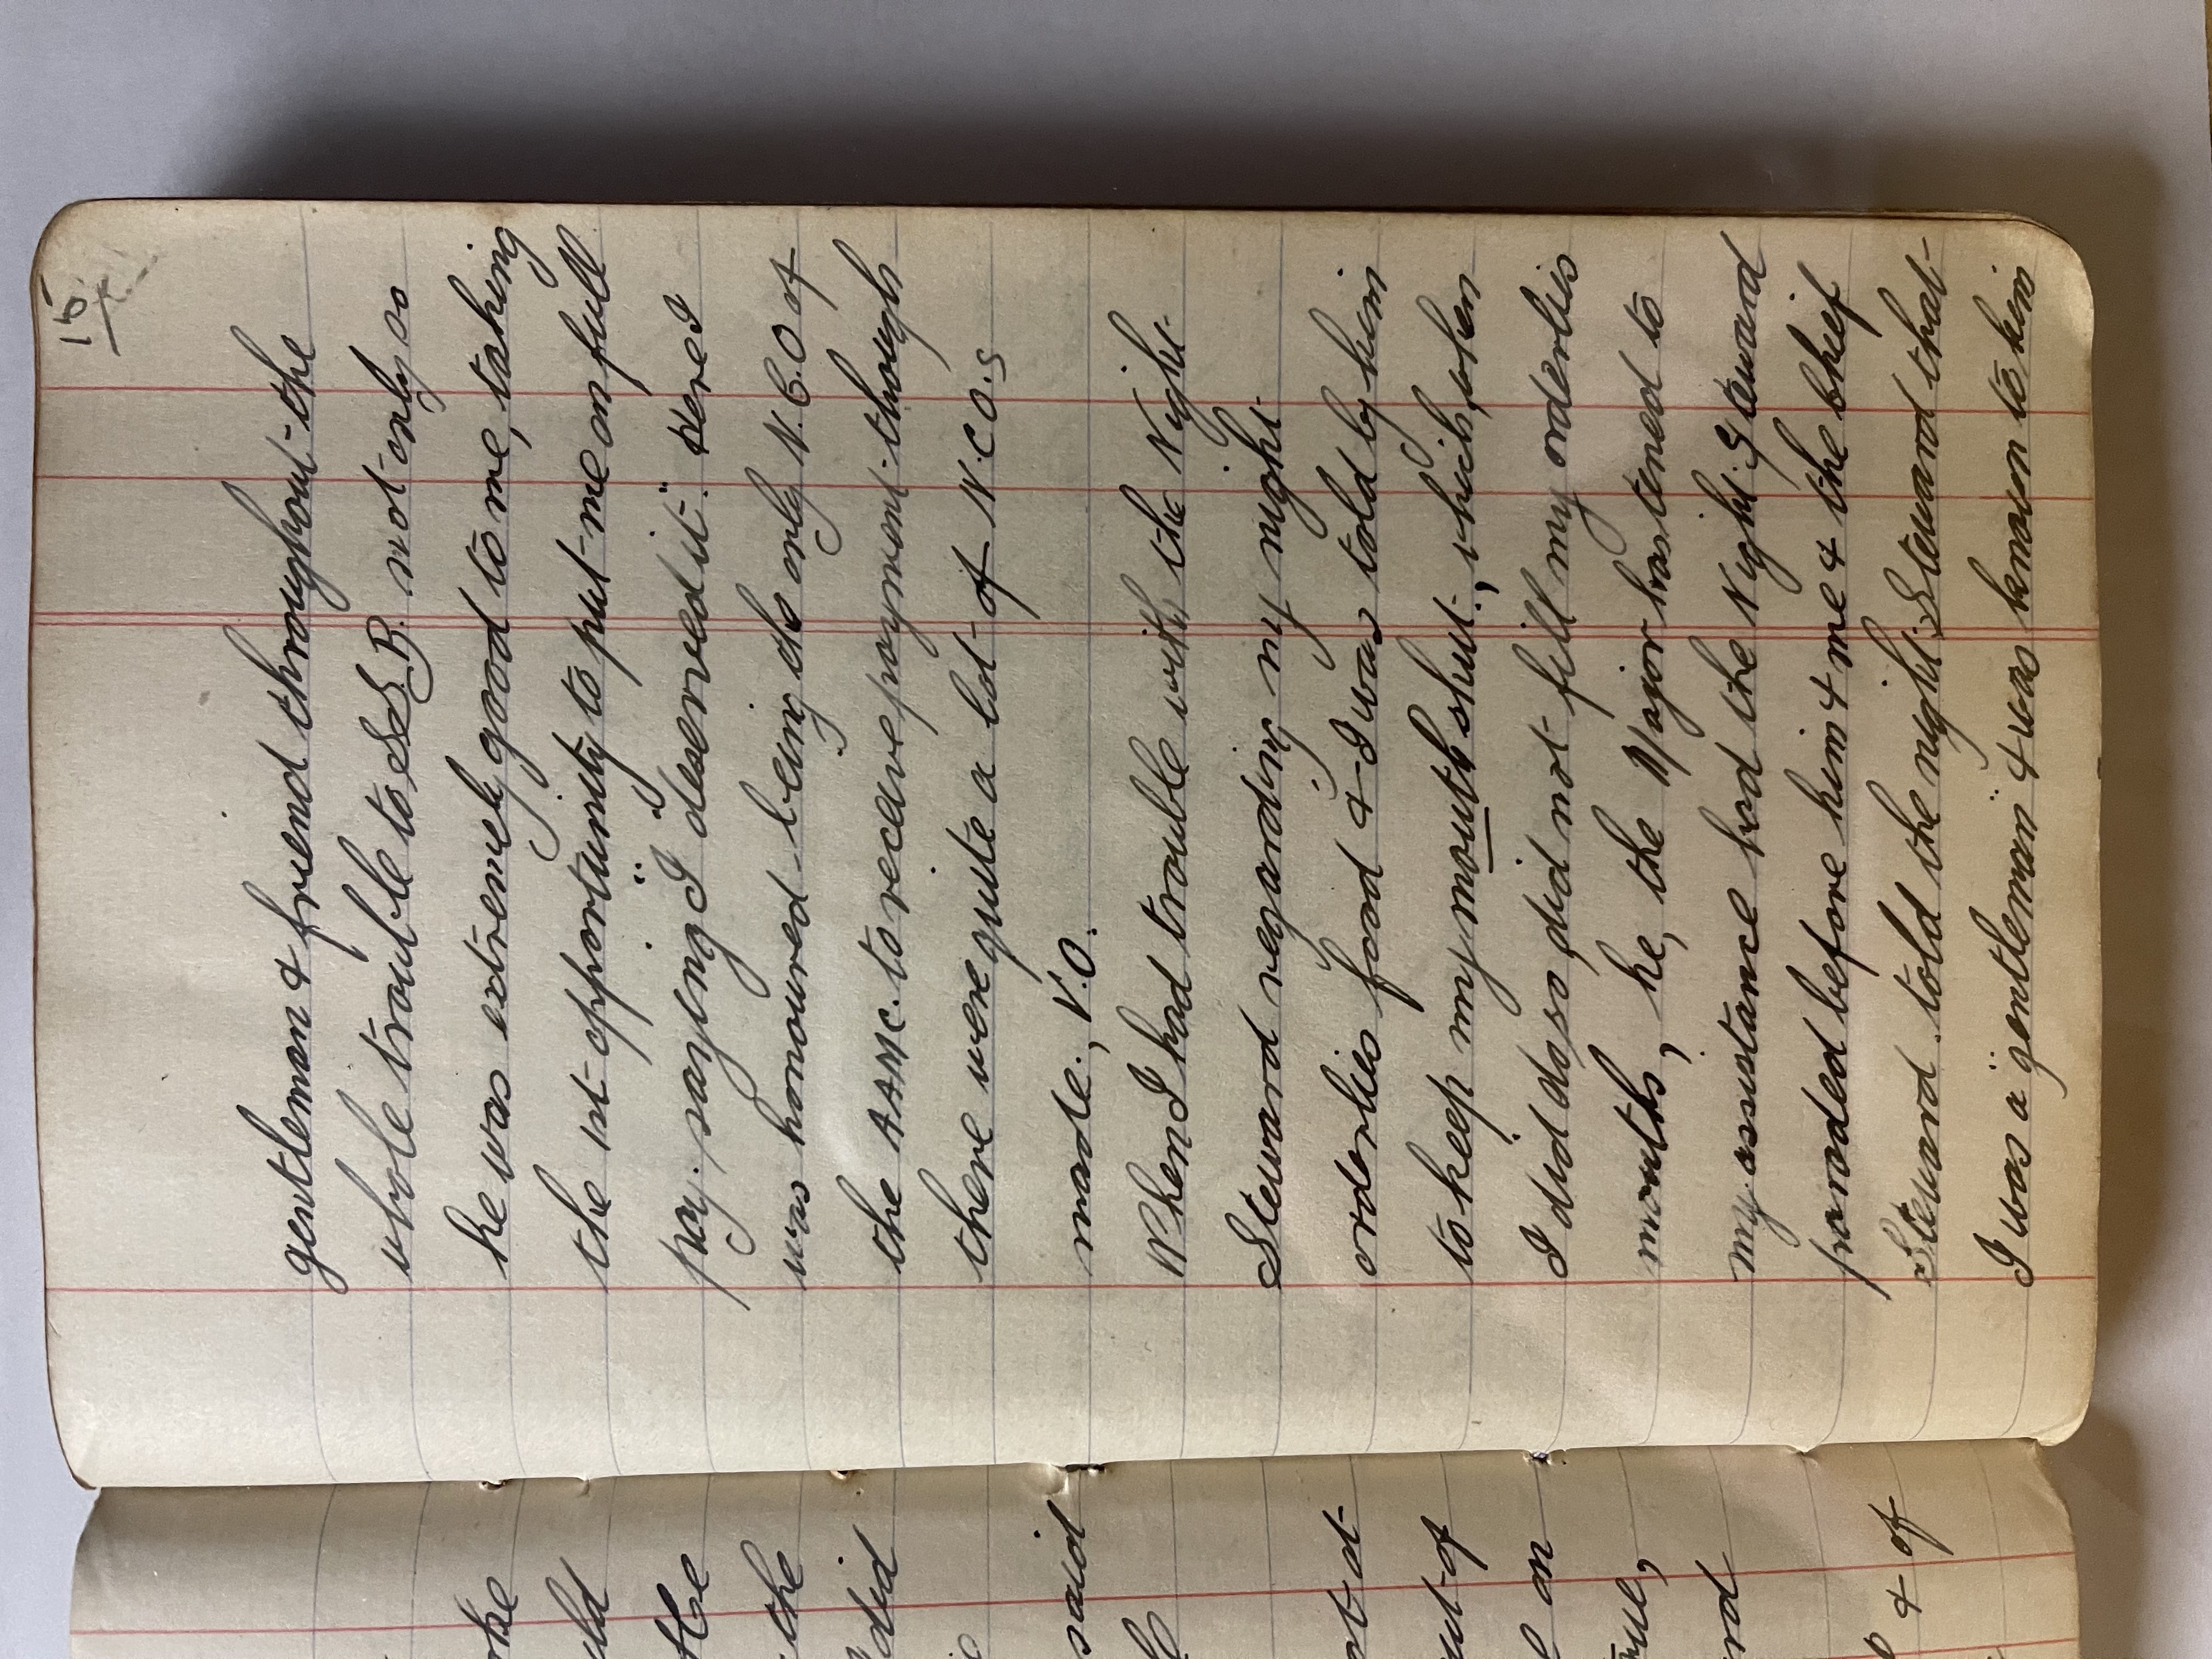 15
gentleman & friend throughout the
whole trouble to S.S.B. not only so
he was extremely good to me, taking
the 1st opportunity to put me on full
pay. saying "I deserved it." Here I
was honoured being the only N.C.O of
the AAMC. to receive payment though
there were quite a lot of N.C.O.s
made., V.O.
When I had trouble with the Night
Steward regarding my night
orderlies food & I was told by him
to keep my mouth shut., which, when
I did do so, did not fill my orderlies
mouths, he, the Major hastened to
my assistance had the Night Steward
paraded before him & me & the Chief
Steward. told the night Steward that
I was a gentleman & was known to him
said
did
the
& of